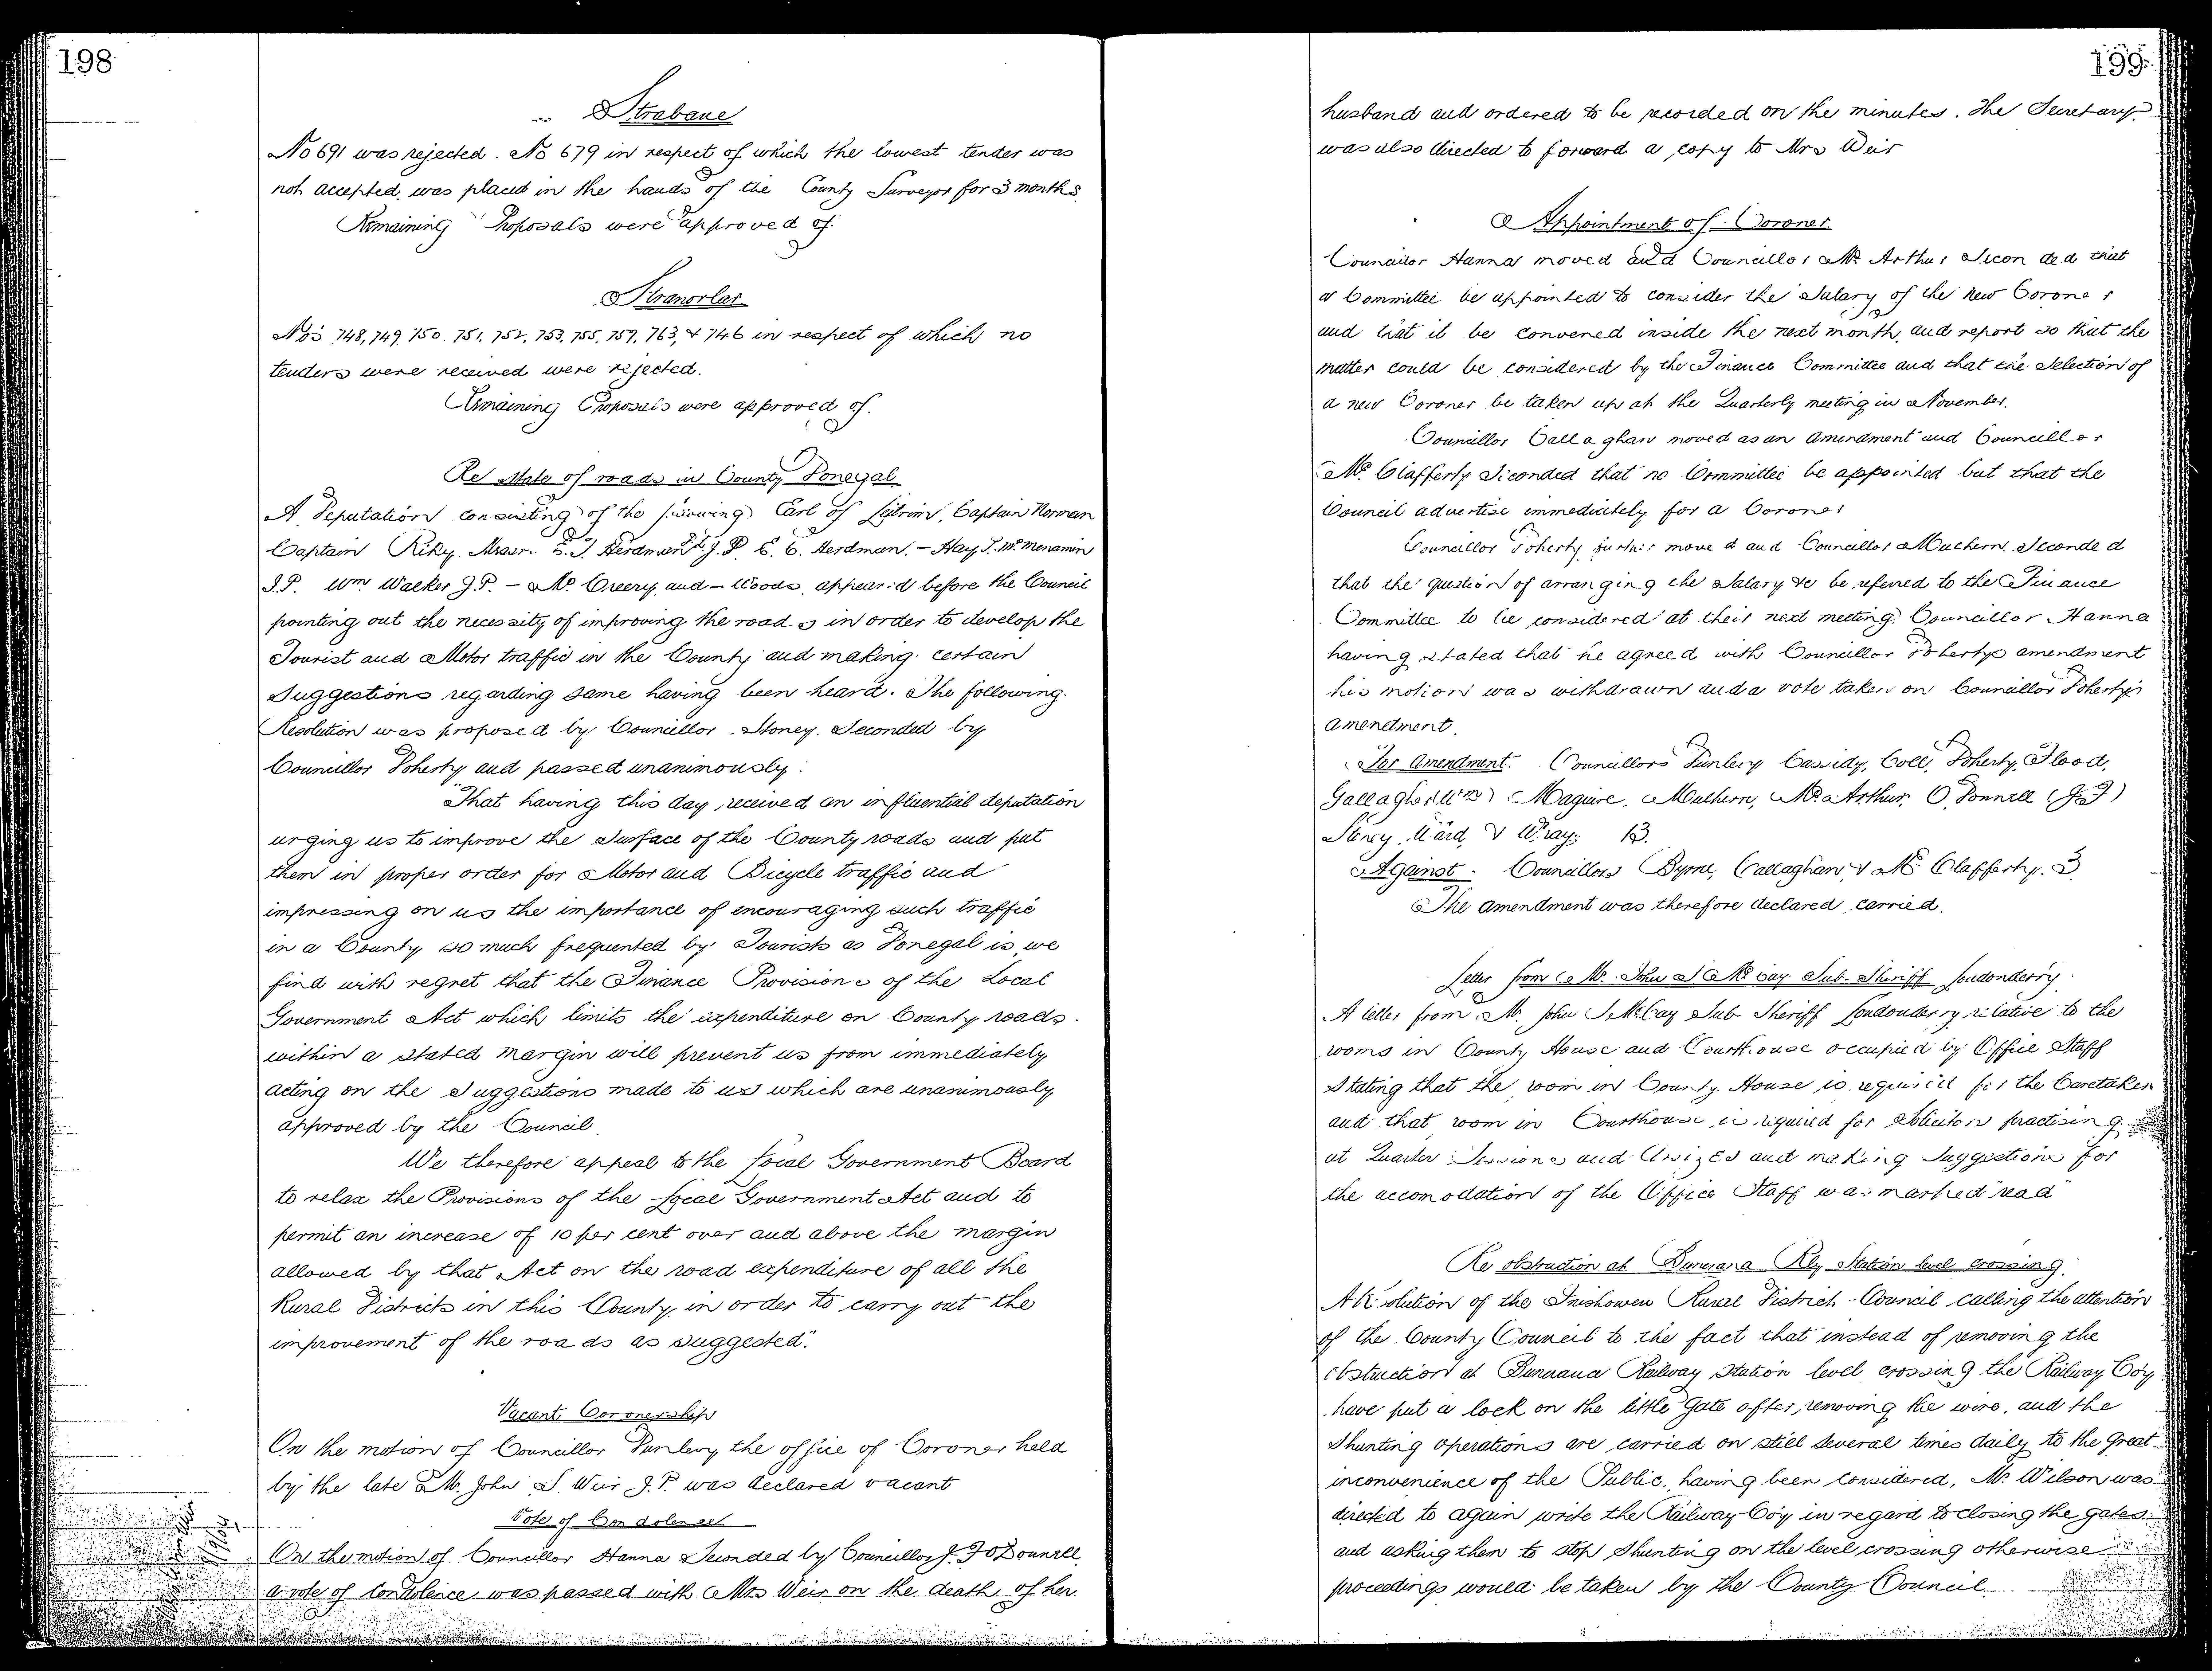 198
Strabane
No 691 was rejected. No 679 in respect of which the lowest tender was
not accepted, was placed in the hands of the County Surveyor for 3 months.
Remaining Proposals were approved of.
Stranorlar
Nos 748, 749, 750, 751, 752, 753, 755, 759, 763, & 746 in respect of which no
tenders were received were rejected.
Remaining Proposals were approved of.
Re State of roads in County Donegal
A Deputation consisting of the following Earl of Leitrim, Captain Norman
Captain Riky, Messrs. E. T. Herdman J.P. E. C. Herdman, - Hay, J. McMenamin
J.P. Wm Walker J.P. - McCreery, and - Woods, appeared before the Council
pointing out the necessity of improving the roads in order to develop the
Tourist and Motor traffic in the County and making certain
Suggestions regarding same having been heard. The following
Resolution was proposed by Councillor Stoney. Seconded by
Councillor Doherty and passed unanimously:
"That having this day received an influential deputation
urging us to improve the Surface of the County roads and put
them in proper order for Motor and Bicycle traffic and
impressing on us the importance of encouraging such traffic
in a County so much frequented by Tourists as Donegal is, we
find with regret that the Finance Provisions of the Local
Government Act which limits the expenditure on County roads
within a stated margin will prevent us from immediately
acting on the Suggestions made to us which are unanimously
approved by the Council.
We therefore appeal to the Local Government Board
to relax the Provisions of the Local Government Act and to
permit an increase of 10 per cent over and above the margin
allowed by that Act on the road expenditure of all the
Rural Districts in this County, in order to carry out the
improvement of the roads as suggested."
Vacant Coronership
On the motion of Councillor Dunlevy the office of Coroner held
by the late Mr. John S. Weir J.P. was declared vacant
Vote of Condolence
On the motion of Councillor Hanna Seconded by Councillor J. F O'Donnell
a vote of Condolence was passed with Mrs Weir on the death of her
199.
husband and ordered to be recorded on the minutes. The Secretary
was also directed to forward a copy to Mrs Weir
Appointment of Coroner
Councillor Hanna moved and Councillor McArthur Seconded that
a Committee be appointed to consider the Salary of the new Coroner
and that it be convened inside the next month, and report so that the
matter could be considered by the Finance Committee and that the Selection of
a new Coroner be taken up at the Quarterly meeting in November.
Councillor Callaghan moved as an Amendment and Councillor
McClafferty Seconded that no Committee be appointed but that the
Council advertise immediately for a Coroner
Councillor Doherty further moved and Councillor Mulhern Seconded
that the question of arranging the Salary &c be referred to the Finance
Committee to be considered at their next meeting. Councillor Hanna
having stated that he agreed with Councillor Dohertys amendment
his motion was withdrawn and a vote taken on Councillor Doherty's
amendment.
For Amendment. Councillors Dunlevy Cassidy, Coll, Doherty, Flood,
Gallagher (Wm) Maguire, Mulhern, McArthur, O'Donnell (J F)
Stoney, Ward, & Wray; 13.
Against. Councillors Byrne, Callaghan & McClafferty. 3
The amendment was therefore declared carried.
Letter from Mr. John S McCay Sub. Sheriff Londonderry.
A letter from Mr. John S McCay Sub Sheriff Londonderry relative to the
rooms in County House and Courthouse occupied by Office Staff
Stating that the room in County House is required for the Caretaker
and that room in Courthouse is required for Solicitors practising
at Quarter Sessions and Assizes and making Suggestions for
the accomodation of the Office Staff was marked "read"
Re obstruction at Buncrana Rly Station level crossing.
A Resolution of the Inishowen Rural District Council calling the attention
of the County Council to the fact that instead of removing the
obstruction at Buncrana Railway Station level crossing the Railway Coy
have put a lock on the little Gate after removing the wire, and the
Shunting operations are carried on still several times daily to the Great
inconvenience of the Public, having been considered, Mr Wilson was
directed to again write the Railway Coy in regard to closing the gates
and asking them to stop Shunting on the level crossing otherwise
proceedings would be taken by the County Council.